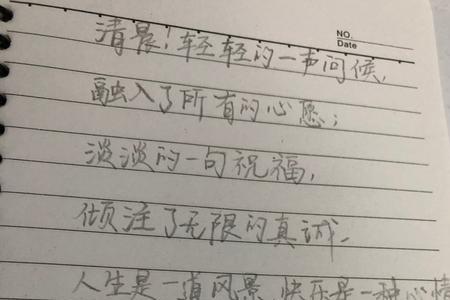 NO.
Date
清晨！轻轻的一声问候，
融入了所有的心愿；
淡淡的一句祝福，
倾注了无限的真诚。
人生是一道风景，快乐是一种心情